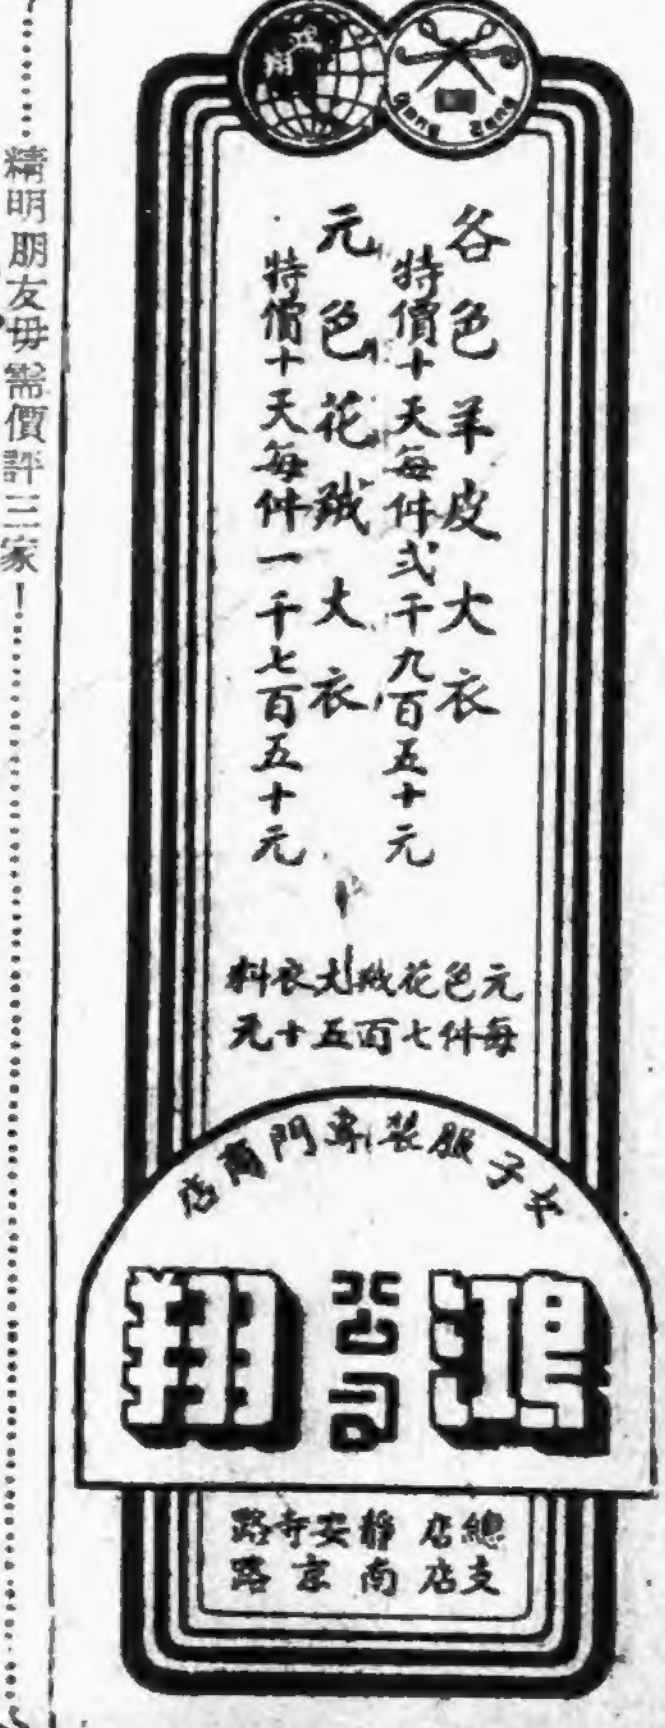 鴻翔
Gong Zang
各色羊皮大衣
特價十天每件弍千九百五十元
元色花絨大衣
特價十天每件一千七百五十元
元色花絨大衣料
每件七百五十元
女子服裝專門商店
鴻翔公司
總店 靜安寺路
支店 南京路
精明朋友毋需價評三家！